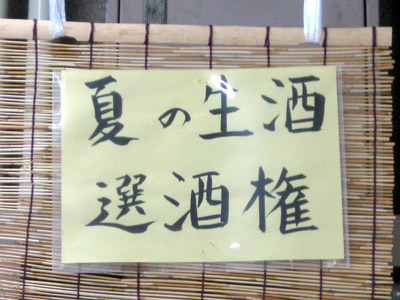 夏の生酒
選酒権